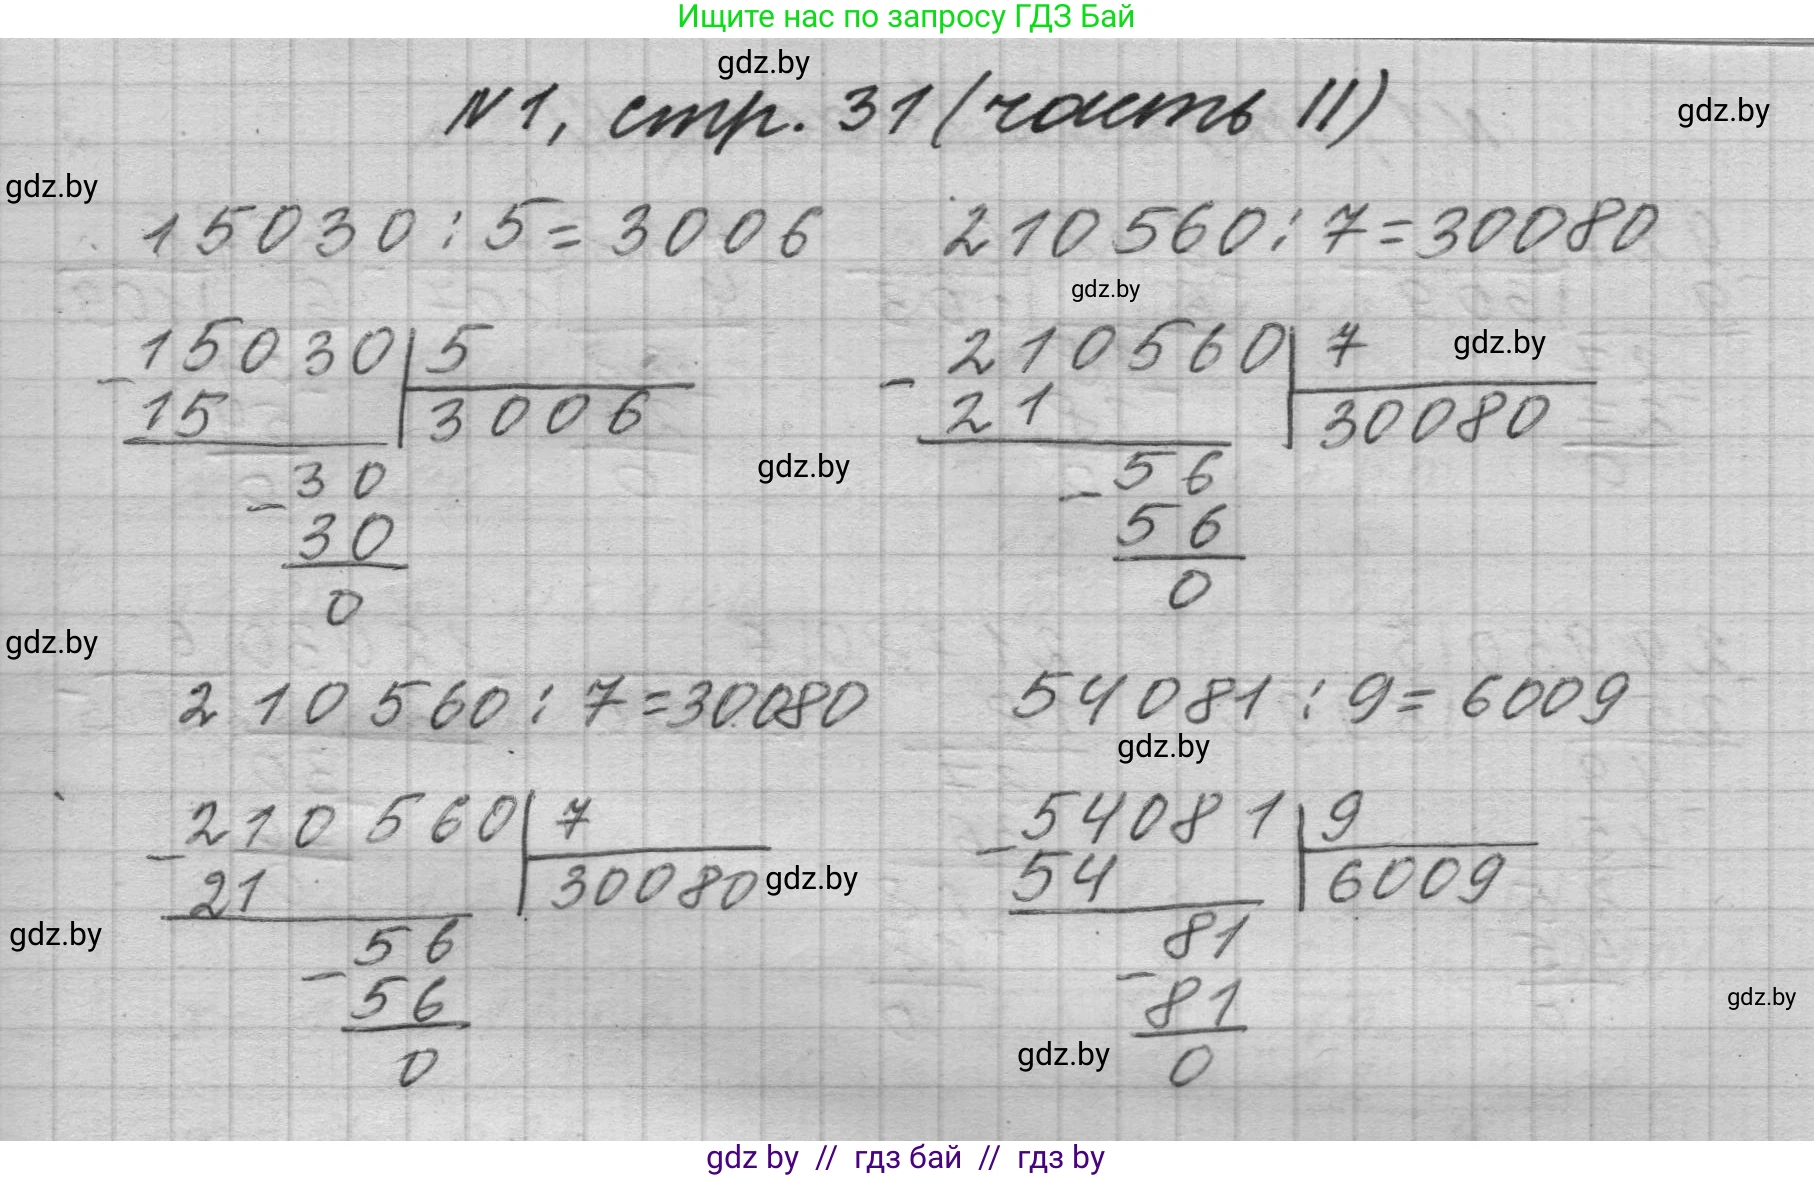 Ищите нас по запросу ГДЗ Бай
gdz.by
№1, стр. 31 (часть II)
gdz.by
gdz.by
15030 : 5 = 3006
210560 : 7 = 30080
gdz.by
15030 | 5
- 15
3006
30
- 30
0
210560 | 7
gdz.by
- 21
30080
gdz.by
56
- 56
0
gdz.by
210560 : 7 = 30080
54081 : 9 = 6009
gdz.by
210560 | 7
- 21
30080
gdz.by
gdz.by
56
- 56
0
54081 | 9
- 54
6009
81
- 81
0
gdz.by
gdz.by
gdz by // гдз бай // гдз by